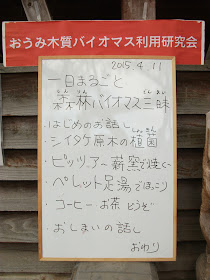 おうみ木質バイオマス利用研究会
2015.4.11
一日まるごと
森林バイオマス三昧
・はじめのお話し
・シイタケ原木の植菌
・ピッツァー薪窯で焼く〜
・ペレット足湯でほっこり
・コーヒー・お茶どうぞ
・おしまいの話し
おわり